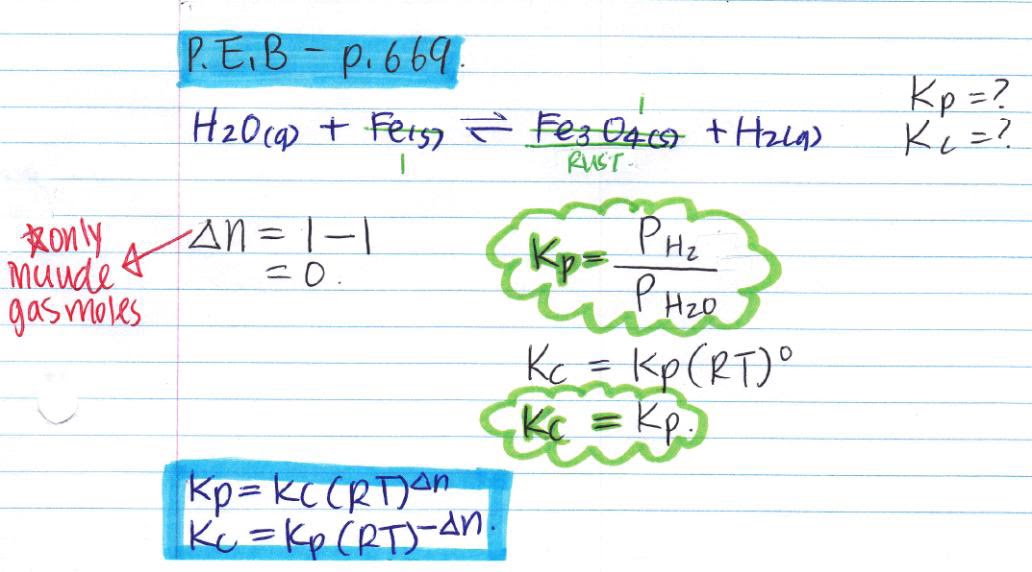 P.E.B - p.669.
Kp = ?
H2O(g) + Fe(s) ⇌ Fe3O4(s) + H2(g)
Kc = ?
1
1
RUST.
Δn = 1 - 1
= 0.
*only
muude
gas moles
Kp = PH2
PH2O
Kc = Kp(RT)⁰
Kc = Kp.
Kp = Kc(RT)^Δn
Kc = Kp(RT)^-Δn.